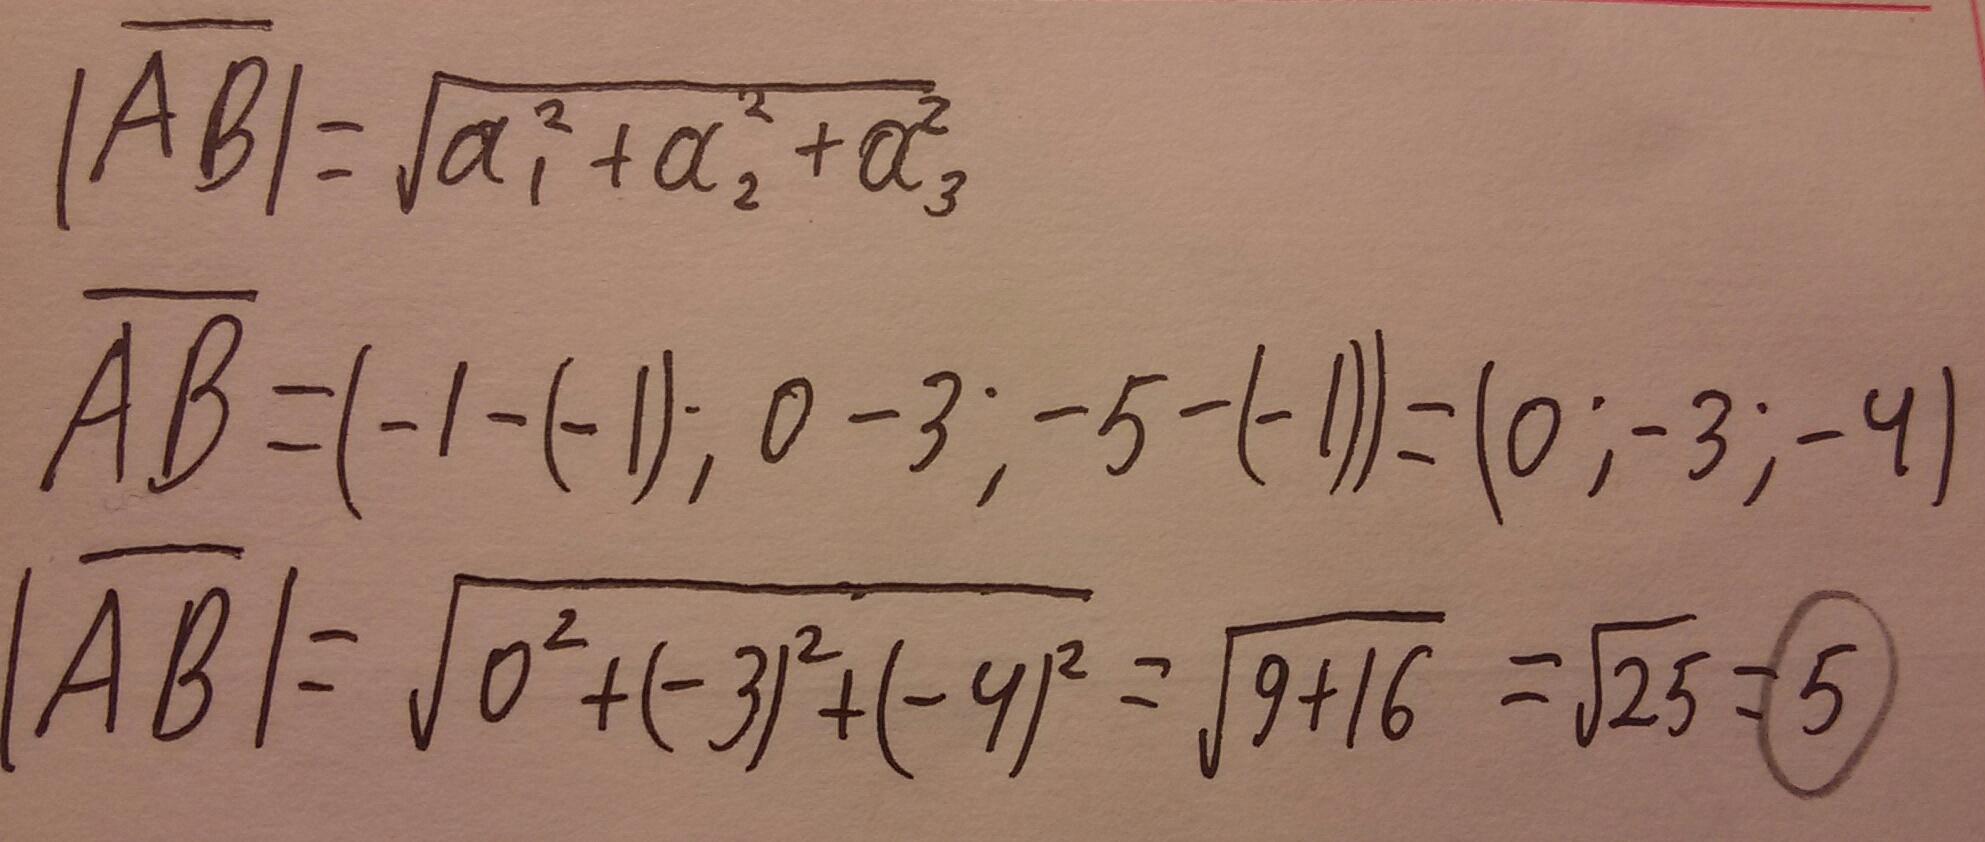 |A̅B̅| = √(a₁² + a₂² + a₃²)
A̅B̅ = (-1-(-1); 0-3; -5-(-1)) = (0; -3; -4)
|A̅B̅| = √(0² + (-3)² + (-4)²) = √(9+16) = √25 = 5